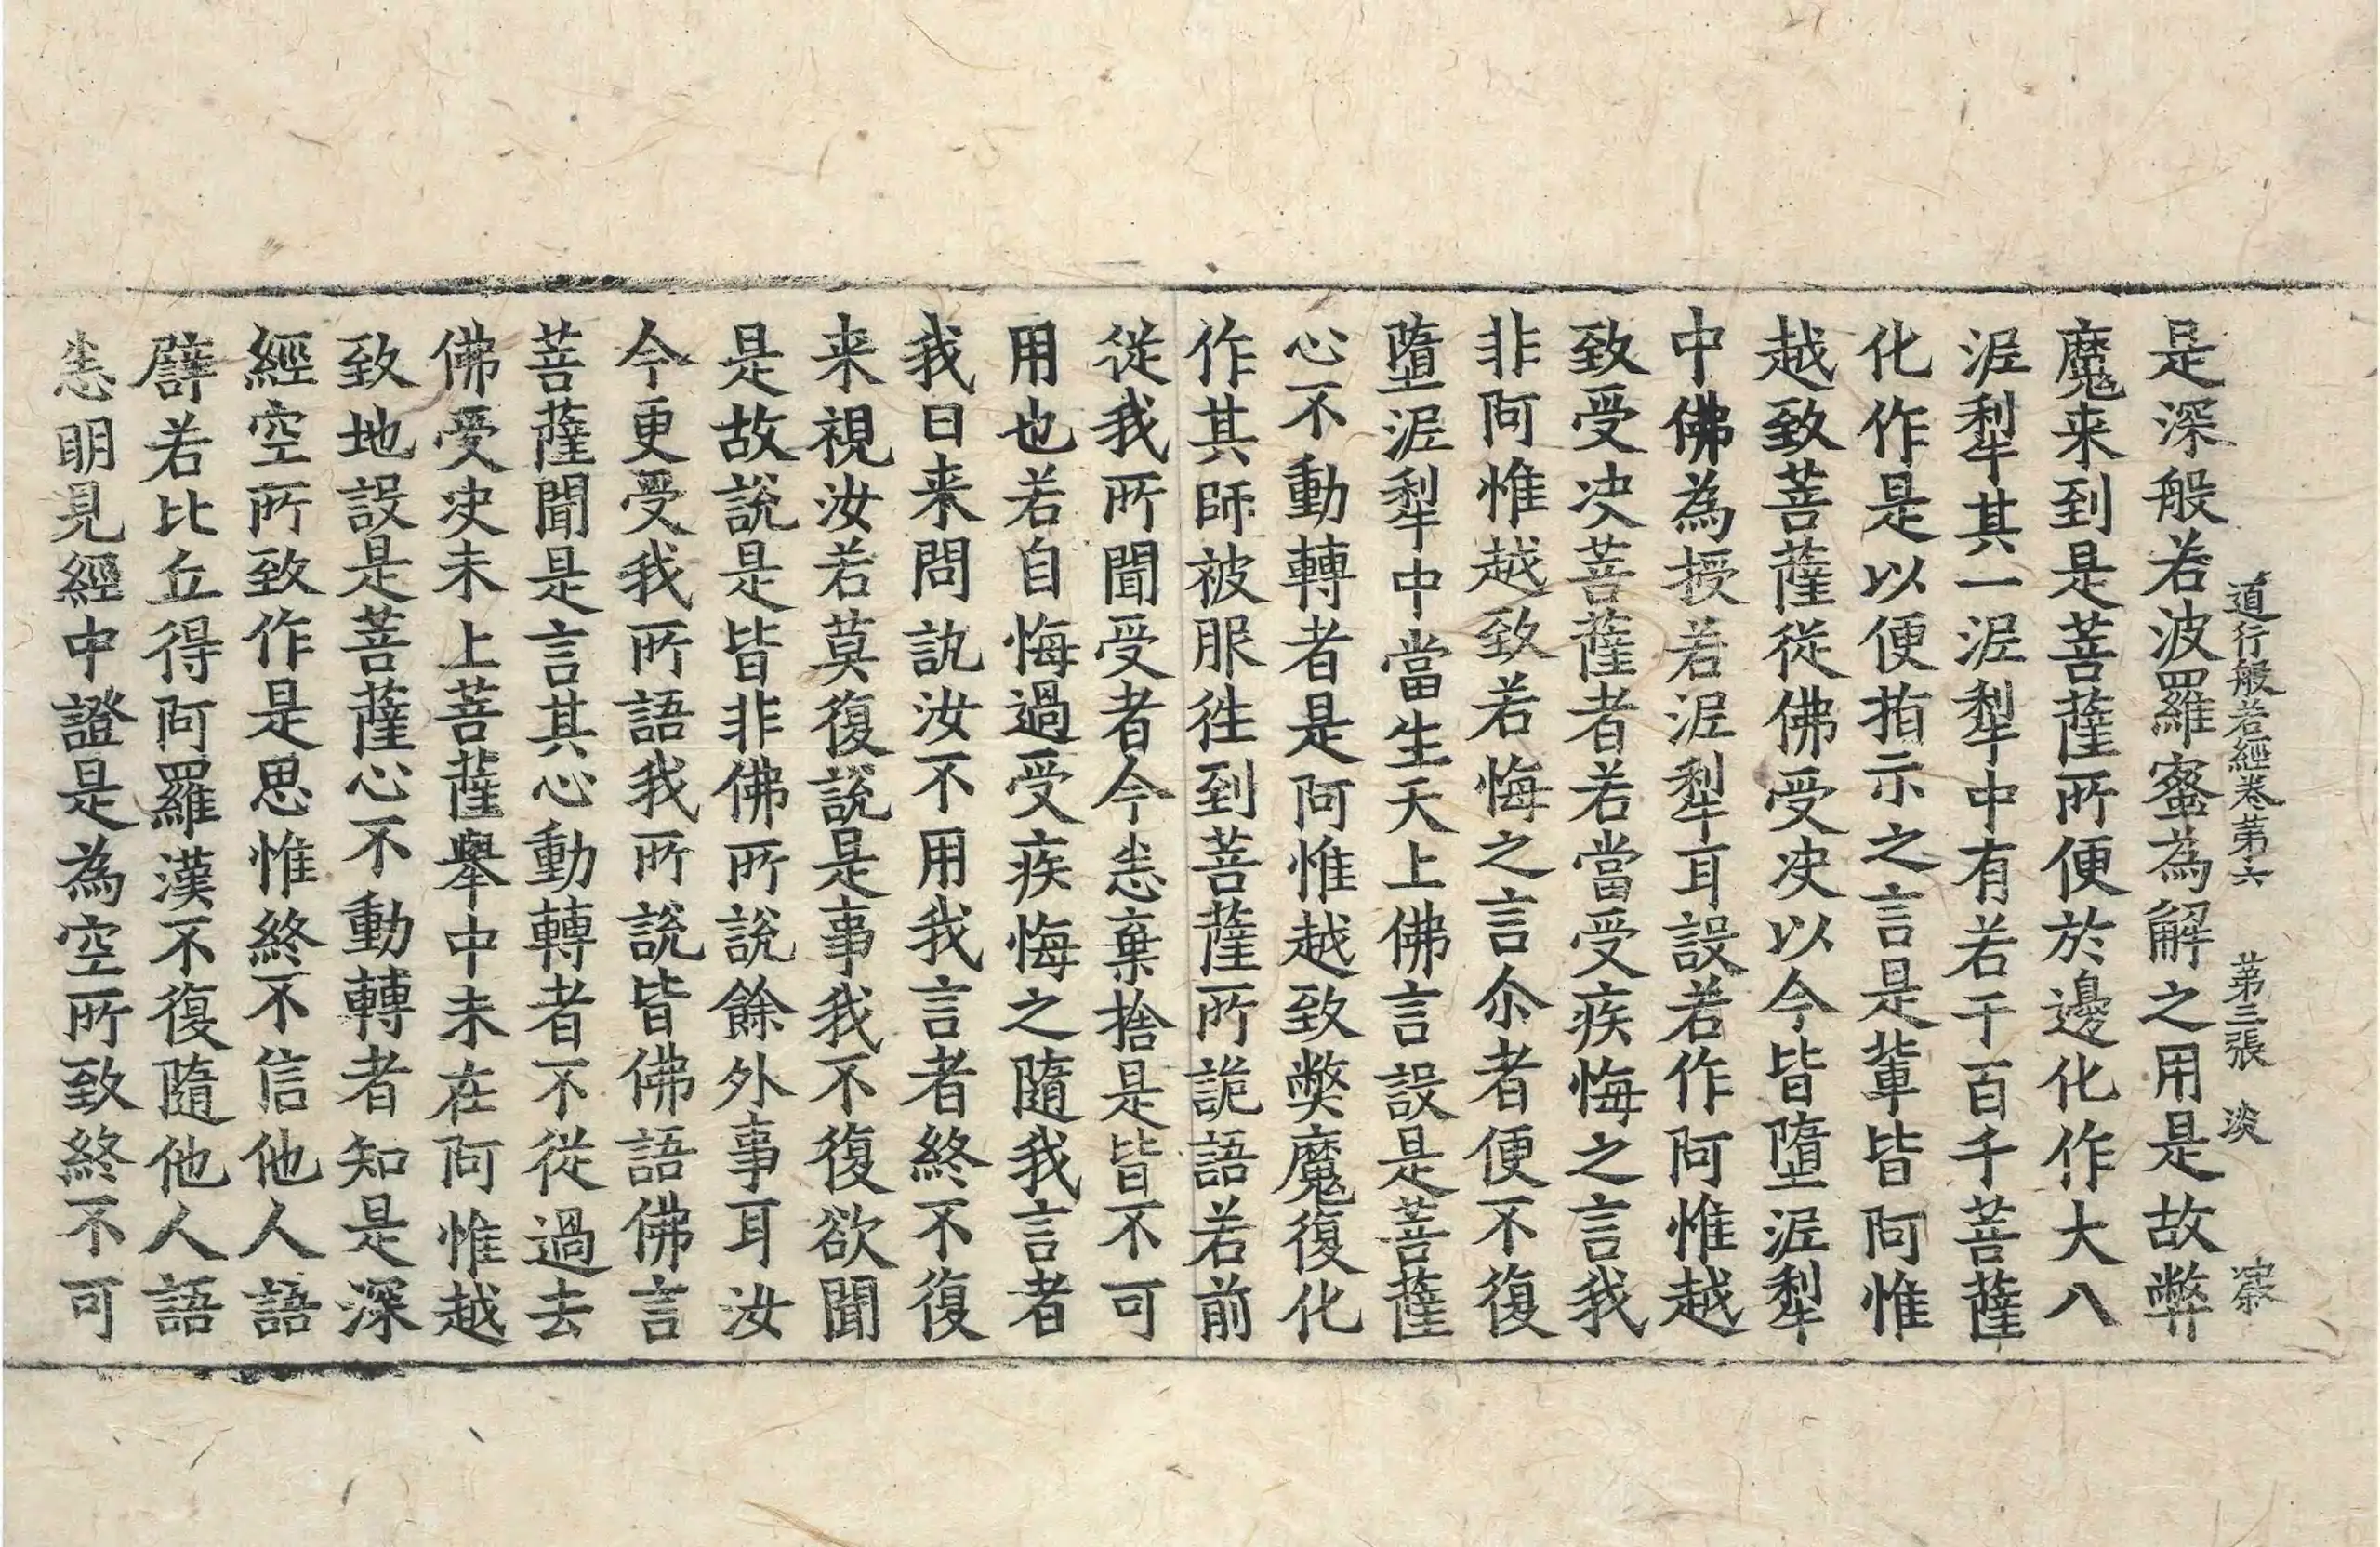 道行般若經卷第六 第三張 淡
是深般若波羅蜜為解之用是故弊
魔来到是菩薩所便於邊化作大八
泥犁其一泥犁中有若干百千菩薩
化作是以便指示之言是輩皆阿惟
越致菩薩從佛受决以今皆墮泥犁
中佛為授若泥犁耳設若作阿惟越
致受决菩薩者若當受疾悔之言我
非阿惟越致若悔之言尒者便不復
墮泥犁中當生天上佛言設是菩薩
心不動轉者是阿惟越致弊魔復化
作其師被服徃到菩薩所詭語若前
從我所聞受者今恙棄捨是皆不可
用也若自悔過受疾悔之隨我言者
我日来問訊汝不用我言者終不復
来視汝若莫復說是事我不復欲聞
是故說是皆非佛所說餘外事耳汝
今更受我所語我所說皆佛語佛言
菩薩聞是言其心動轉者不從過去
佛受决未上菩薩舉中未在阿惟越
致地設是菩薩心不動轉者知是深
經空所致作是思惟終不信他人語
譬若比丘得阿羅漢不復隨他人語
恙明見經中證是為空所致終不可